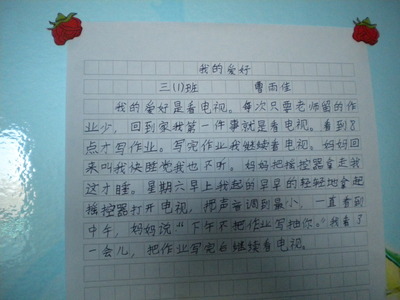 我的爱好
三(1)班 曹雨佳
我的爱好是看电视。每次只要老师留的作
业少，回到家我第一件事就是看电视。看到8
点才写作业。写完作业我继续看电视。妈妈回
来叫我快睡觉我也不听。妈妈把摇控器拿走我
这才睡。星期六早上我起的早早的轻轻地拿起
摇控器打开电视，把声音调到最小，一直看到
中午，妈妈说“下午不把作业写抽你。”我看了
一会儿，把作业写完白继续看电视。